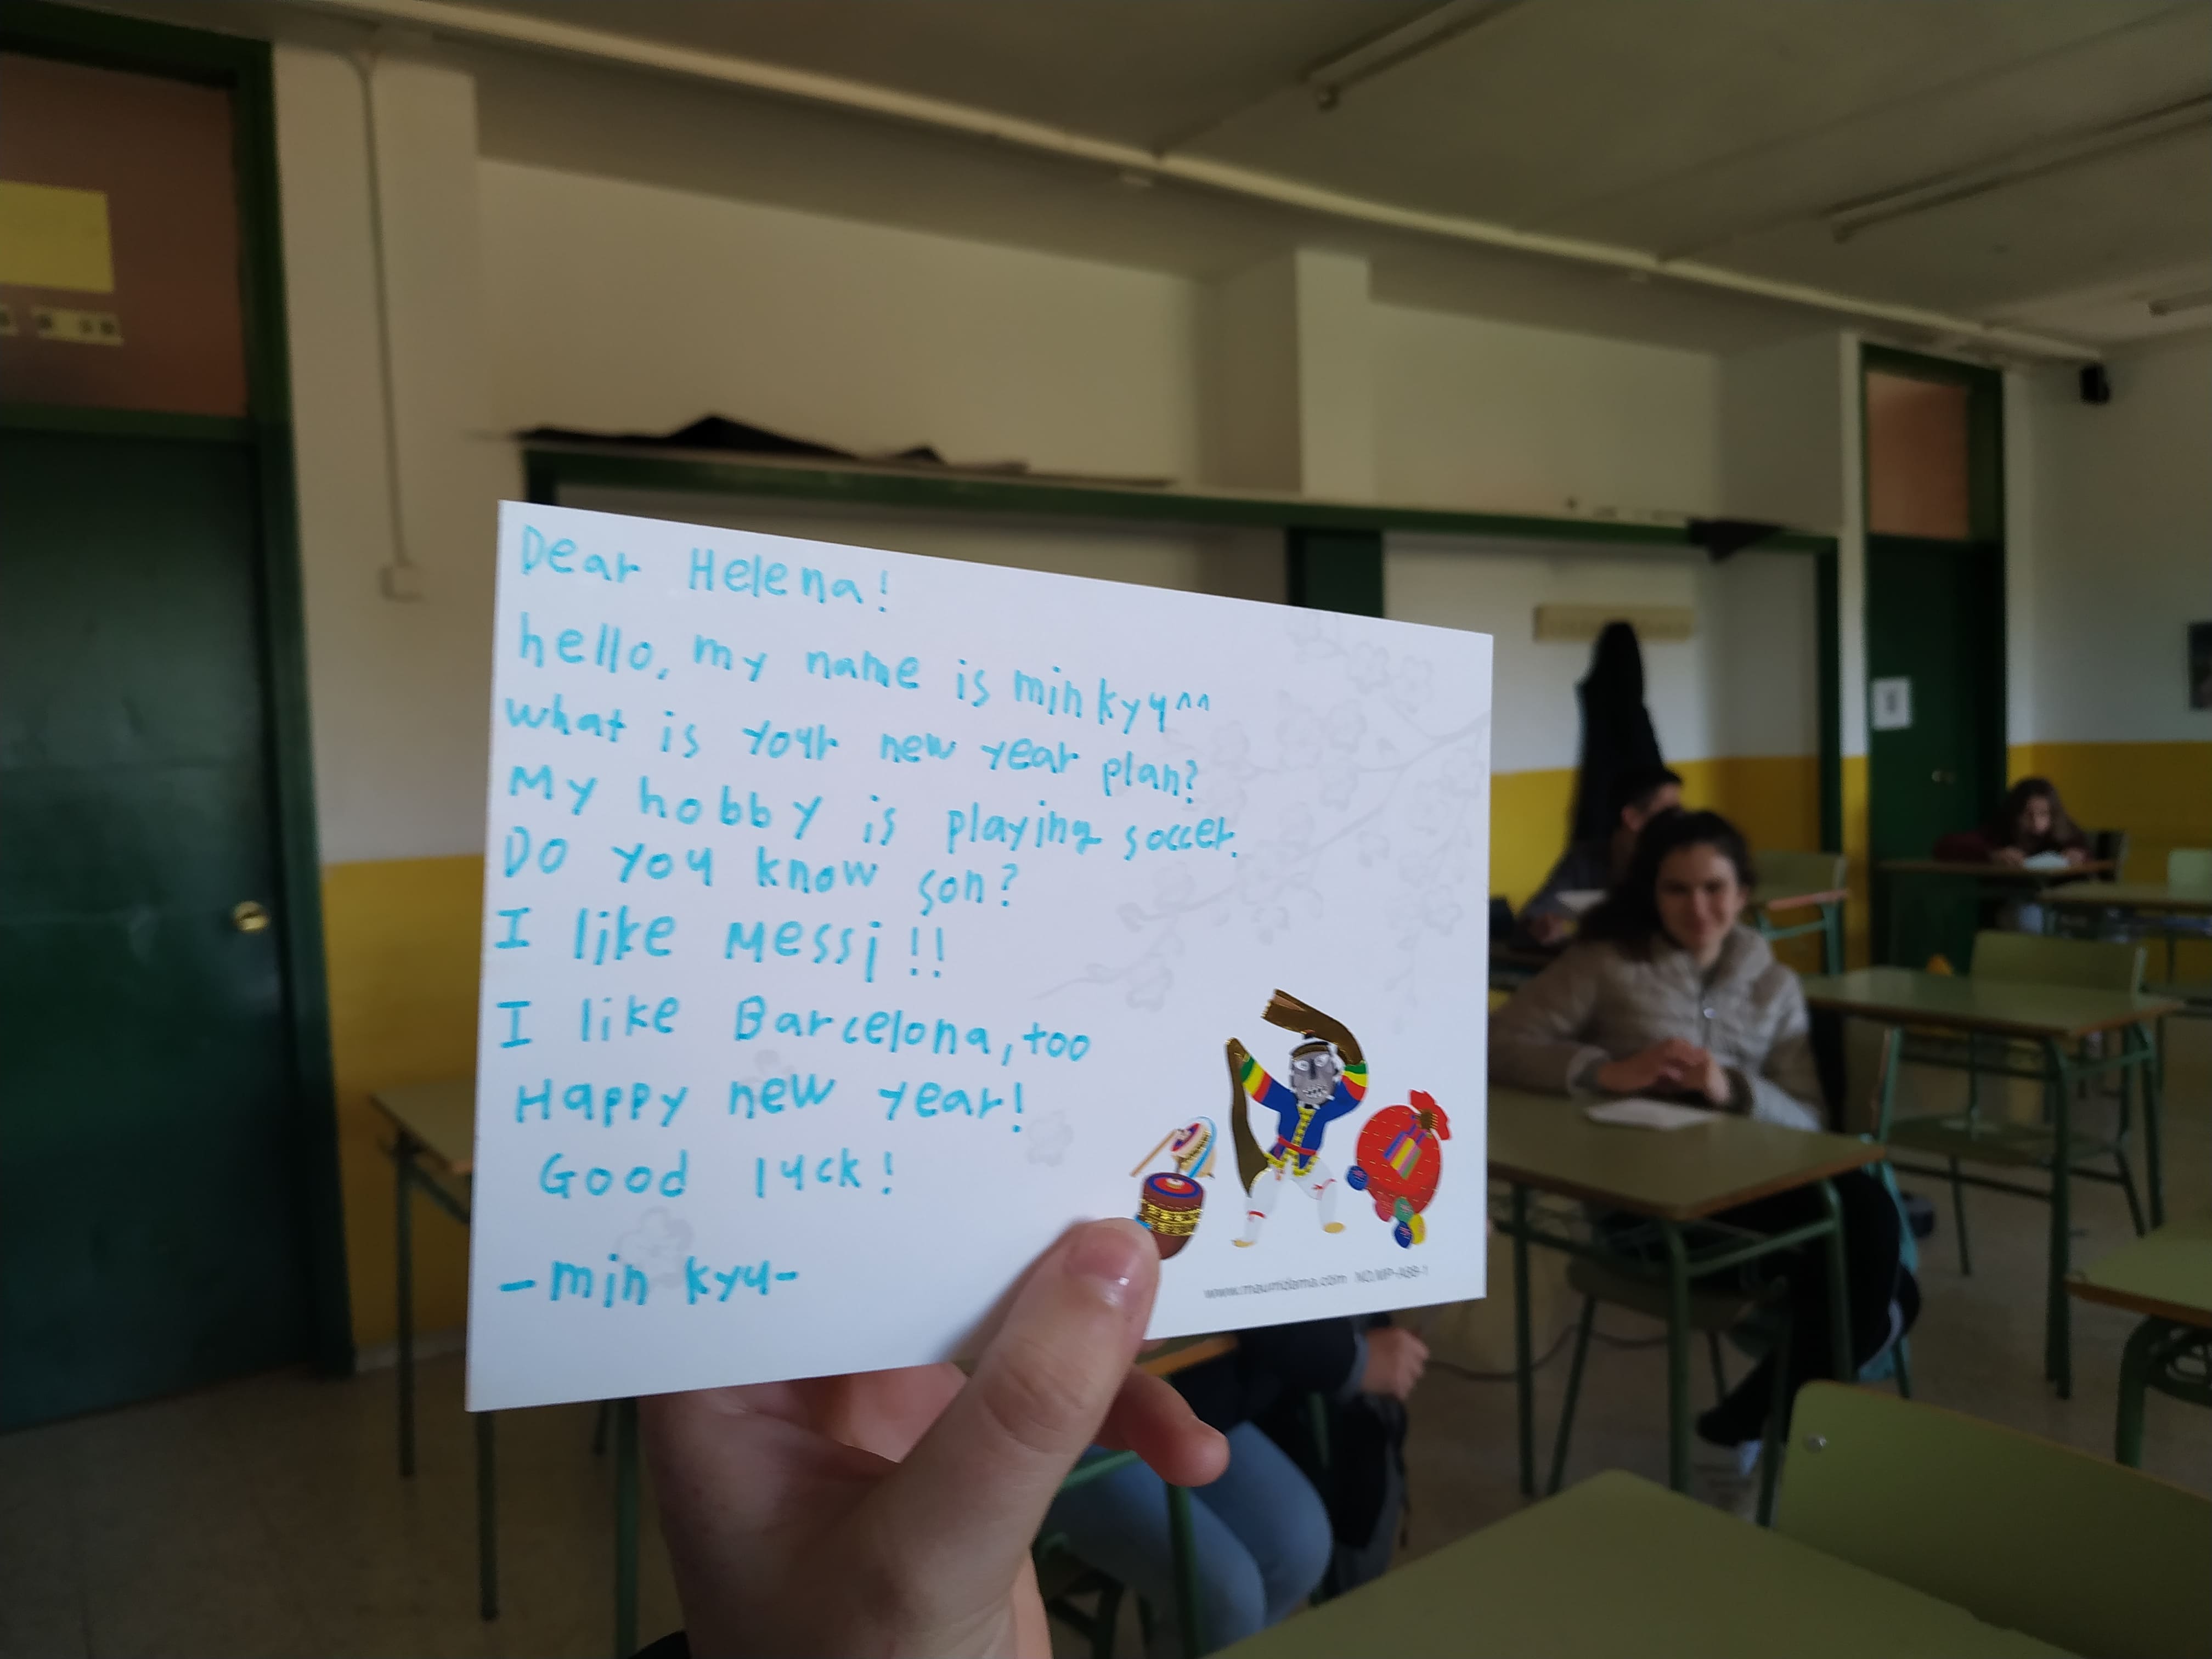 Dear Helena!
hello, my name is min kyu^^
what is your new year plan?
My hobby is playing soccer.
Do you know son?
I like Messi!!
I like Barcelona, too
Happy new year!
Good luck!
-min kyu-
www.maumdama.com NO.MP-A89-1